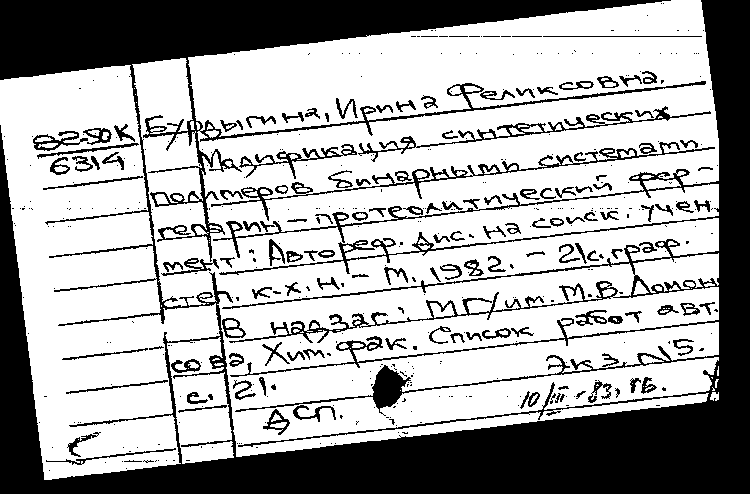 Бурдыгина, Ирина Феликсовна.
82-50К
6314
Модификация синтетических
полимеров бинарными системами
гепарин-протеолитический фер-
мент: Автореф. дис. на соиск. учен.
степ. к.х.н. - М., 1982. - 21с., граф.
В надзаг.: МГУ им. М.В. Ломоно
сова, Хим. фак. Список работ авт.
с. 21.
Экз. N5.
ДСП.
10/III-83, ГБ.